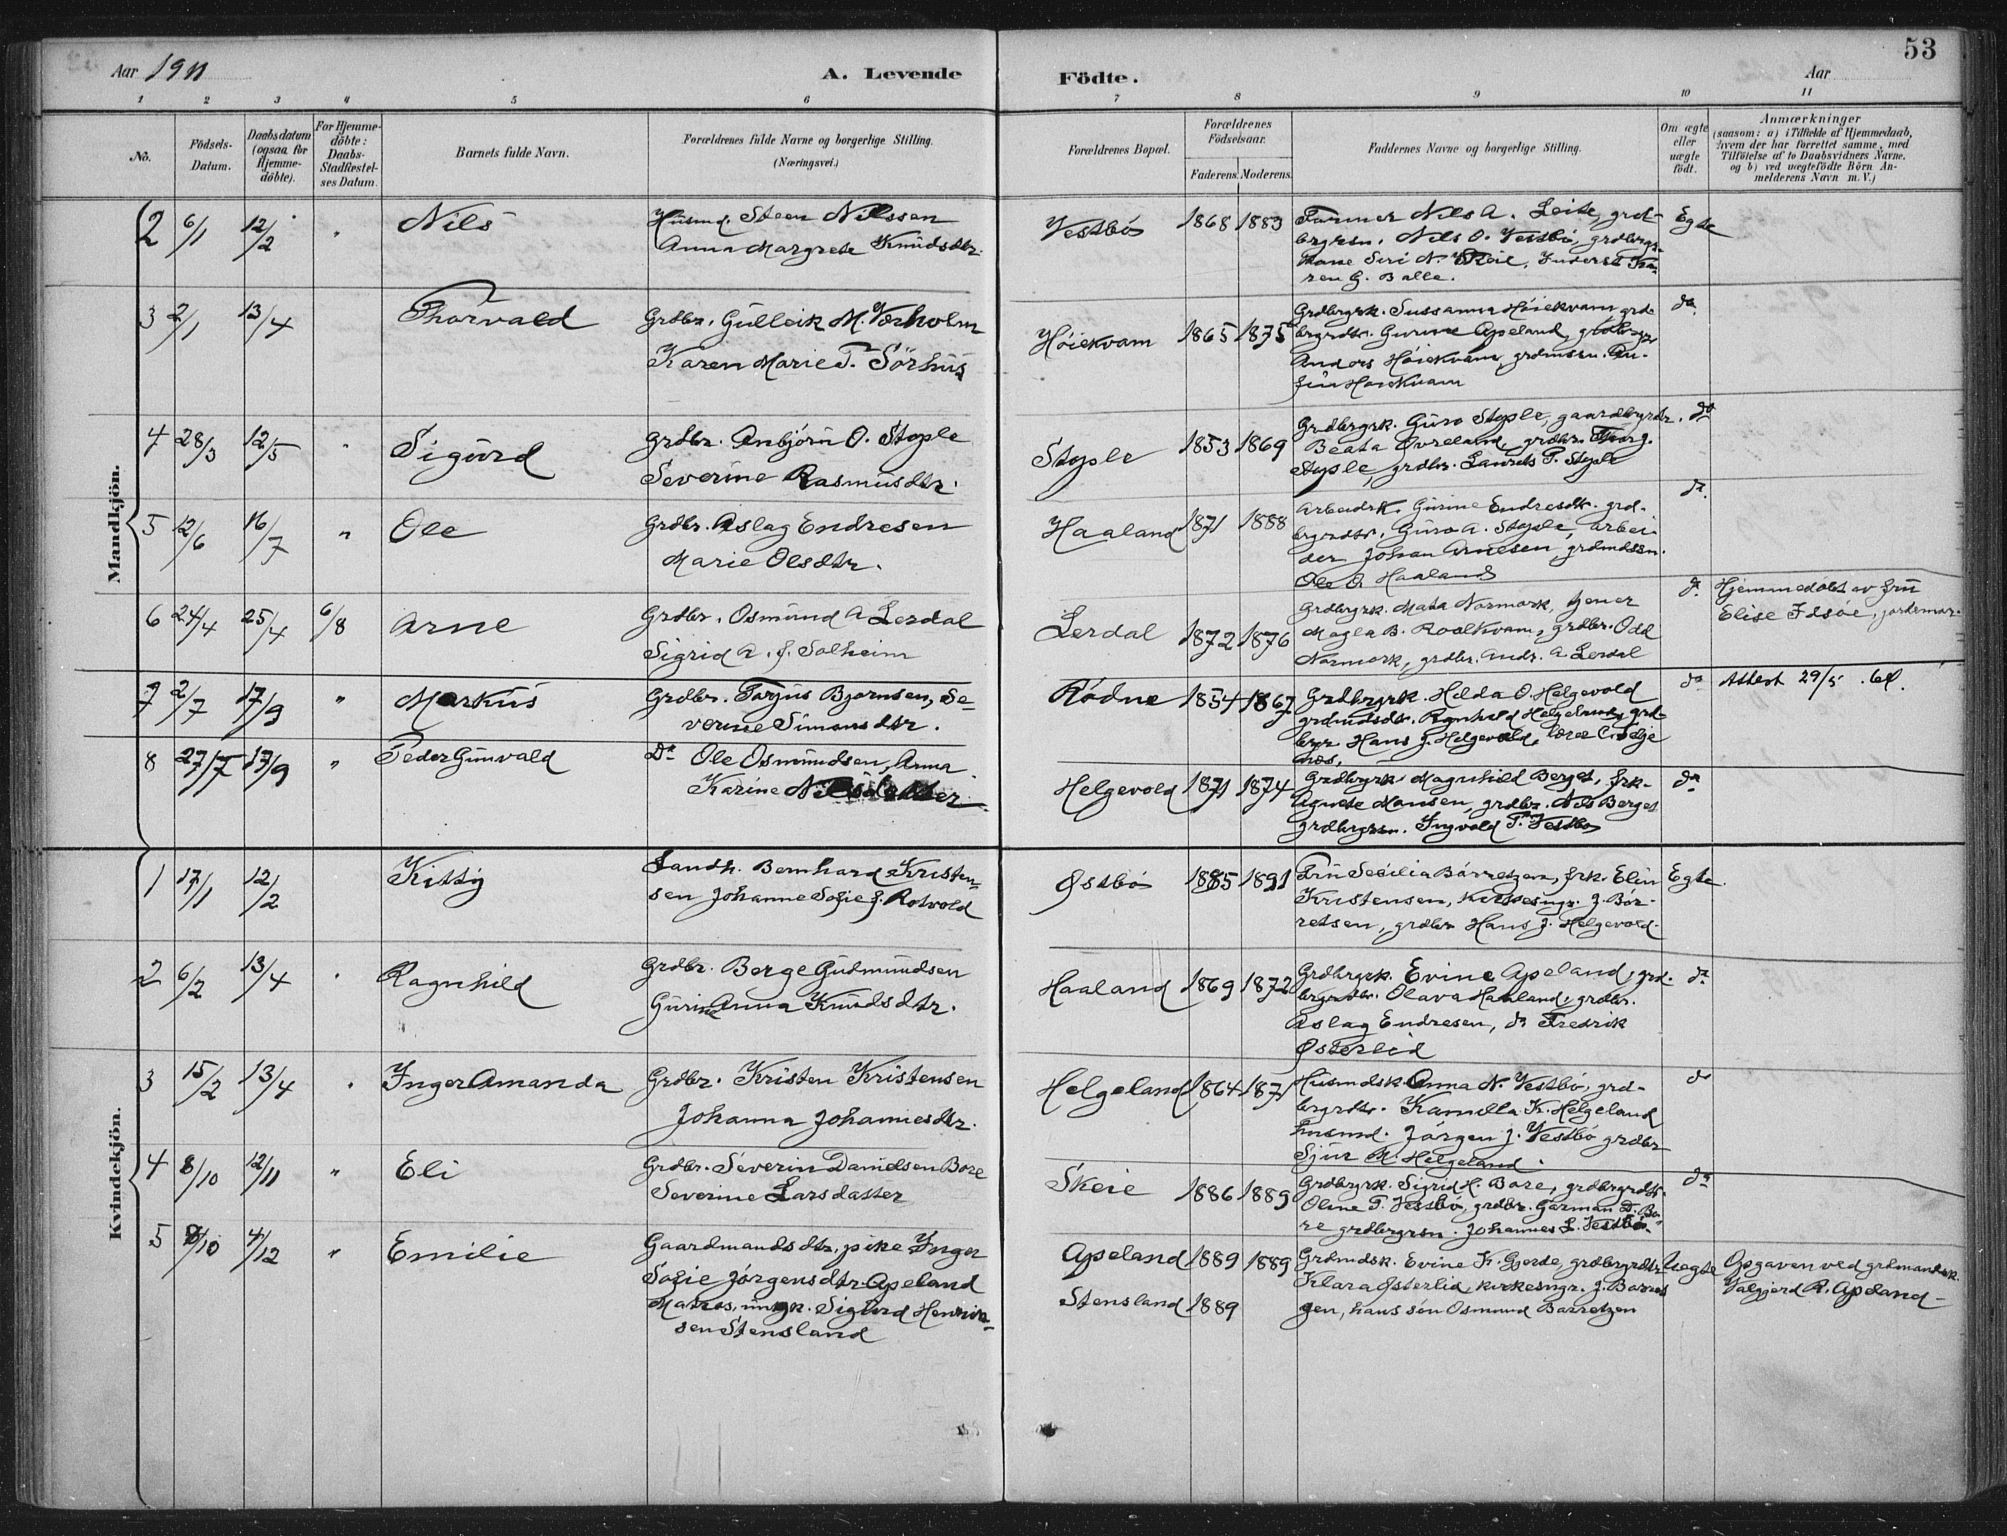 53
Aar 1911
A. Levende
Födte.
Aar
1 2 3 4 5 6 7 8 9 10 11
No.
Födsels-Datum.
Daabsdatum (ogsaa for Hjemme-döbte).
For Hjemme-döbte: Daabs-Stadfæstel-ses Datum.
Barnets fulde Navn.
Forældrenes fulde Navne og borgerlige Stilling. (Næringsvei.)
Forældrenes Bopæl.
Forældrenes Födselsaar.
Faderens. Moderens.
Faddernes Navne og borgerlige Stilling.
Om ægte eller uægte födt.
Anmærkninger
(saasom: a) i Tilfælde af Hjemmedaab,
hvem der har forrettet samme, med
Tilföielse af to Daabsvidners Navne,
og b) ved uægtefödte Börn An-
melderens Navn m. V.)
Mandkjön.
2 6/1 12/2 " Nils
Husmd. Steen Nilssen
Anna Margrete Knudsdtr.
Vestbö 1868 1883
Farmer Nils A. Leite, grd-
brgrsn. Nils O. Vestbö, grdbrgr-
kone Siri N. Skeie, Inderst Ka-
ren G. Balle.
Egte
3 2/1 13/4 Thorvald
Grdbr. Gulleik M. Værholm
Karen Marie T. Sörhus
Höiekvam 1865 1875
Grdbrgrk. Sussanna Höiekvam grd-
brgrdtr. Gurine Apeland,
Anders Höiekvam, grdmssn.
Höiekvam
do
4 28/3 12/5 " Sigurd
Grdbr. Anbjörn O. Stople
Severine Rasmusdtr.
Stople 1853 1869
Grdbrgrk. Guro Stople, gaardbrgrdtr.
Beata Övreland, grdbr.
Stople, grdbr. Laurits T. Stople
do
5 12/6 16/7 " Ole
Grdbr. Aslag Endresen
Marie Olsdtr.
Haaland 1871 1888
Arbeidrk. Gurine Endresdtr. grd-
brgrdtr. Guro A. Stople, arbei-
der Johan Arnesen, grdmdssn.
Ole O. Haaland
do
6 24/4 25/4 6/8 Arne
Grdbr. Osmund A Lerdal
Sigrid A. J. Solheim
Lerdal 1872 1876
Grdbrgrk. Mata Normork, tjener
Magla B. Roalkvam, grdbr. Odd
Normork, grdbr. Andr. A. Lerdal
do
Hjemmedöbt av fru
Elise Idsöe, jordemor.
7 2/7 17/9 " Markus
Grdbr. Torjus Bjornsen, Se-
verine Simonsdtr.
Rödne 1854 1867
Grdbrgrk. Helda O. Helgevold
grdmdsdtr. Ragnhild Helgeland, grd-
brgr Hans J. Helgevold, lærer C. Helge
næs.
do
Attest 29/5
8 27/7 17/9 " Peder Gunvald
Do Ole Osmundsen, Anna
Karine Nilsdatter
Helgevold 1871 1874
Grdbrgrk. Magnhild Berget, frk.
Agnete Hansen, grdbr. Nils Berget
grdbrgrsn. Ingvald T. Vestbö
do
Kvindekjön.
1 17/1 12/2 Kitty
Landh. Bernhard Kristen-
sen Johanne Sofie J. Rotvold
Østbö 1885 1891
Fru Secilia Börretzen, frk. Elin
Kristensen, kirkesngr. J. Bör-
retsen, grdbr Hans J. Helgevold.
Egte.
2 6/2 13/4 " Ragnhild
Grdbr. Berge Gudmundsen
Gurine Anna Knudsdtr.
Haaland 1869 1872
Grdbrgrk. Evine Apeland, grd-
brgrdtr. Olava Haaland, grdbr.
Aslag Endresen, do Fredrik
Østerlid
do
3 15/2 13/4 " Inger Amanda
Grdbr. Kristen Kristensen
Johanna Johannesdtr.
Helgeland 1864 1871
Husmdsk. Anna N. Vestbö, grd-
brgrdtr. Kamilla K. Helgeland
husmd. Jörgen J. Vestbö grdbr
Sjur M. Helgeland.
do
4 8/10 12/11 " Eli
Grdbr. Severin Danielsen Bore
Severine Larsdatter
Skeie 1886 1889
Grdbrgrk. Sigrid H. Bore, grdbrgrdtr.
Oline T. Vestbö, grdbr. Garman D. Bo-
re grdbrgrsn. Johannes L. Vestbö.
do
5 8/10 4/12 " Emilie
Gaardmandsdtr. pike Inger
Sofie Jörgensdtr. Apeland
Matros, ungk. Sigurd Henrik-
sen Stensland
Apeland 1889 1889
Stensland 1889
Grdmdsk. Evine K. Gjerde, grdbrgrdtr.
Klara Østerlid kirkesngr. J. Borret
zen, hans sön Osmund Borretzen
Uegte
Opgaven ved grdmandsk.
Valgjerd R. Apeland